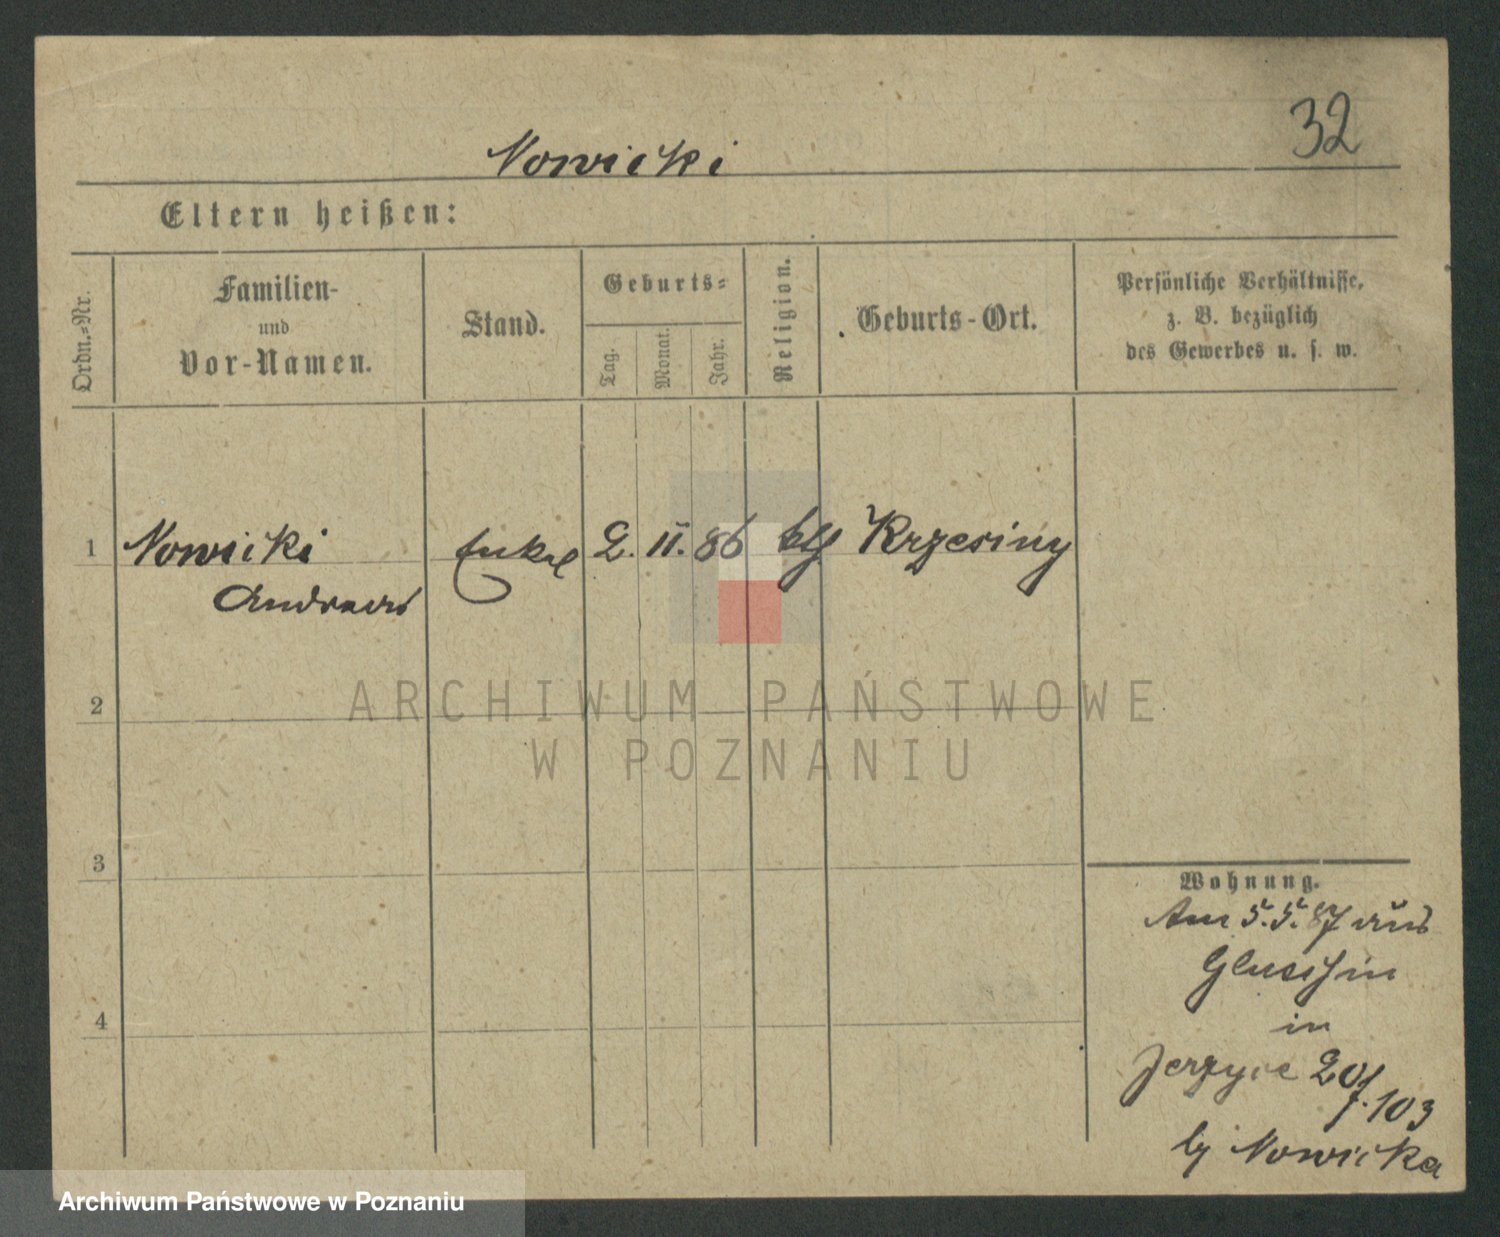 32
Nowicki
Eltern heißen:
Ordn.-Nr.
Familien-
und
Vor-Namen.
Stand.
Geburts-
Tag.
Monat.
Jahr.
Religion.
Geburts-Ort.
Persönliche Verhältnisse,
z. B. bezüglich
des Gewerbes u. s. w.
1 Nowicki Enkel 2. II. 86 kth Krzesiny
Andreas
2
3
4
Wohnung.
Am 5.5.87 aus
Gluschin
in
Jerzyce 20
103
by Nowicka
ARCHIWUM PAŃSTWOWE
W POZNANIU
Archiwum Państwowe w Poznaniu